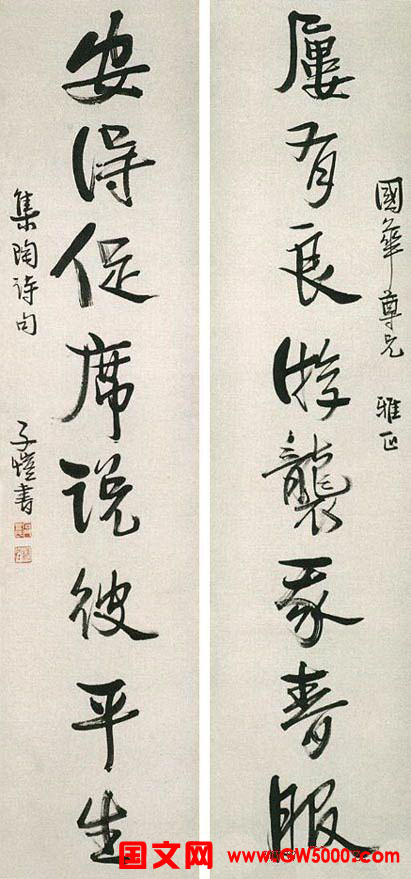 國華尊兄 雅正
屢有良游襲我春服
安得促席说彼平生
集陶诗句 子愷書
国文网
www.GW5000.com